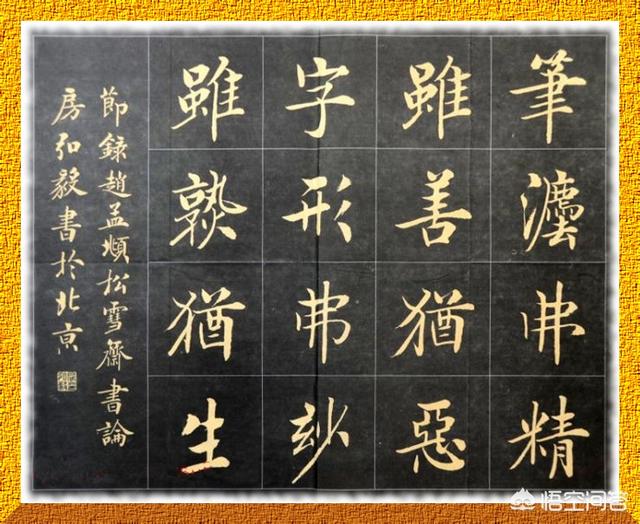 筆灋弗精
雖善猶惡
字形弗玅
雖熟猶生
節錄趙孟頫松雪齋書論
房弘毅書於北京
悟空问答